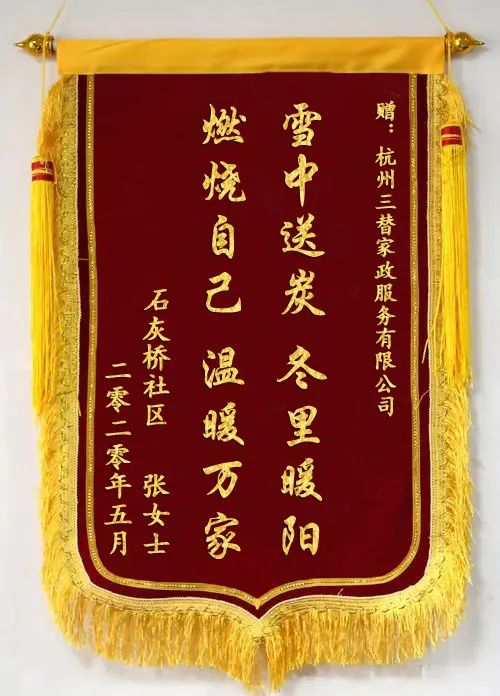 赠：杭州三替家政服务有限公司
雪中送炭 冬里暖阳
燃烧自己 温暖万家
石灰桥社区 张女士
二零二零年五月